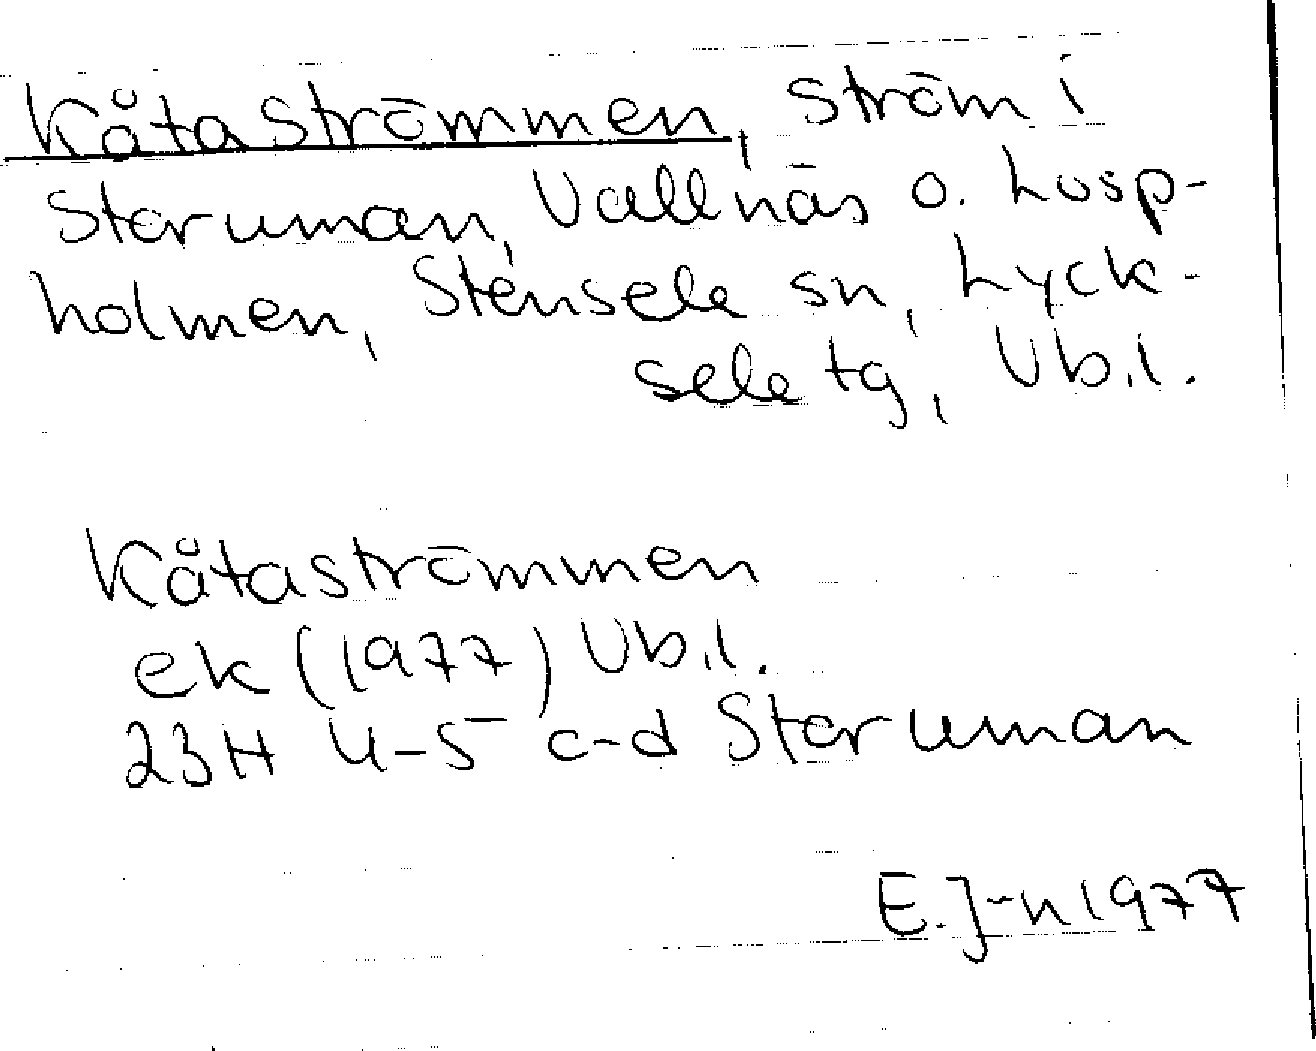 Kåtaströmmen, ström i
Storuman, Vallnäs o. Lusp-
holmen, Stensele sn, Lyck-
sele tg, Vb.l.
Kåtaströmmen
ek (1977) Vb.l.
23H 4-5 c-d Storuman
E.J-n 1977